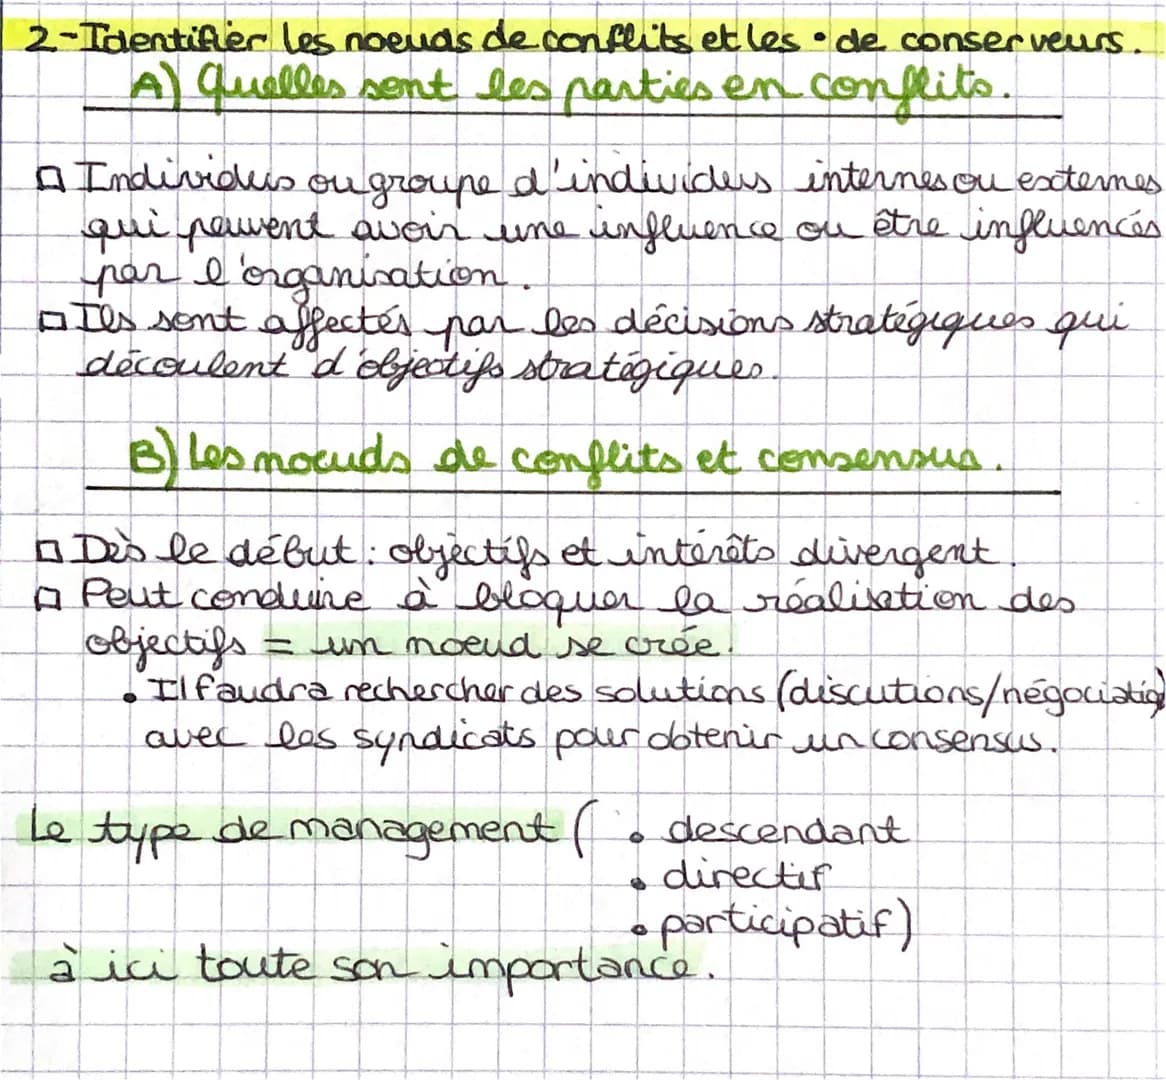 2-Identifier les noeuds de conflits et les • de conserveurs.
A) Quelles sont les parties en conflits.
□ Individus ou groupe d'individus internes ou externes
qui peuvent avoir une influence ou être influencés
par l'organisation.
□ Ils sont affectés par les décisions stratégiques qui
découlent d'objectifs stratégiques.
B) Les noeuds de conflits et consensus.
□ Dès le début : objectifs et intérêts divergent.
□ Peut conduire à bloquer la réalisation des
objectifs = un noeud se crée.
• Il faudra rechercher des solutions (discutions/négociation)
avec les syndicats pour obtenir un consensus.
Le type de management ( • descendant
• directif
• participatif)
à ici toute son importance.